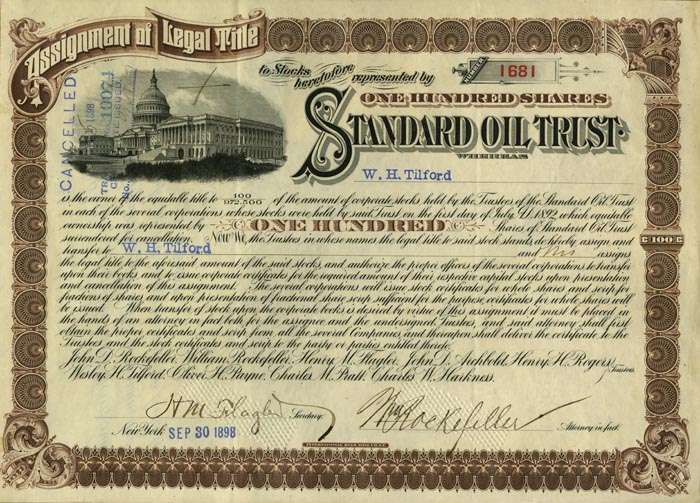 Assignment of Legal Title
to Stocks
heretofore represented by
NUMBER 1681
ONE HUNDRED SHARES
STANDARD OIL TRUST.
WHEREAS
CANCELLED
1898
W. H. Tilford
is the owner of the equitable title to 100/972.500 of the amount of corporate stocks held by the Trustees of the Standard Oil Trust
in each of the several corporations whose stocks were held by said Trust on the first day of July, A.D. 1892, which equitable
ownership was represented by ONE HUNDRED Shares of Standard Oil Trust
surrendered for cancellation. Now We the Trustees in whose names the legal title to said stock stands do hereby assign and
transfer to W. H. Tilford and his assigns
the legal title to the aforesaid amount of the said stocks, and authorize the proper officers of the several corporations to transfer
upon their books and to issue corporate certificates for the required amount of their respective capital stocks upon presentation
and cancellation of this assignment. The several corporations will issue stock certificates for whole shares and scrip for
fractions of shares and upon presentation of fractional share scrip sufficient for the purpose, certificates for whole shares will
be issued. When transfer of stock upon the corporate books is desired by virtue of this assignment it must be placed in
the hands of an attorney in fact both for the assignee and the undersigned Trustees, and said attorney shall first
obtain the proper certificates and scrip from all the several Companies and thereupon shall deliver the certificate to the
Trustees and the stock certificates and scrip to the party or parties entitled thereto.
John D. Rockefeller, William Rockefeller, Henry M. Flagler, John D. Archbold, Henry H. Rogers,
Wesley H. Tilford, Oliver H. Payne, Charles M. Pratt, Charles W. Harkness. Trustees
H M Flagler Secretary. Wm Rockefeller Attorney in fact.
New York SEP 30 1898
100